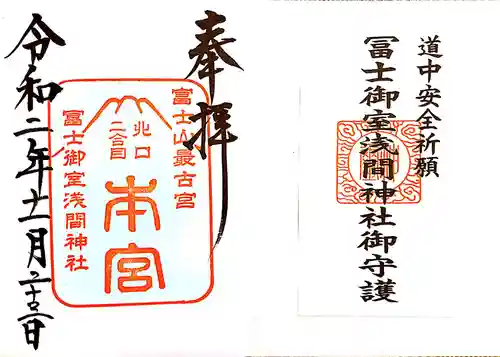 道中安全祈願
冨士御室浅間神社御守護
奉拝
富士山最古宮
北口
二合目
本宮
冨士御室浅間神社
令和二年十一月二十六日